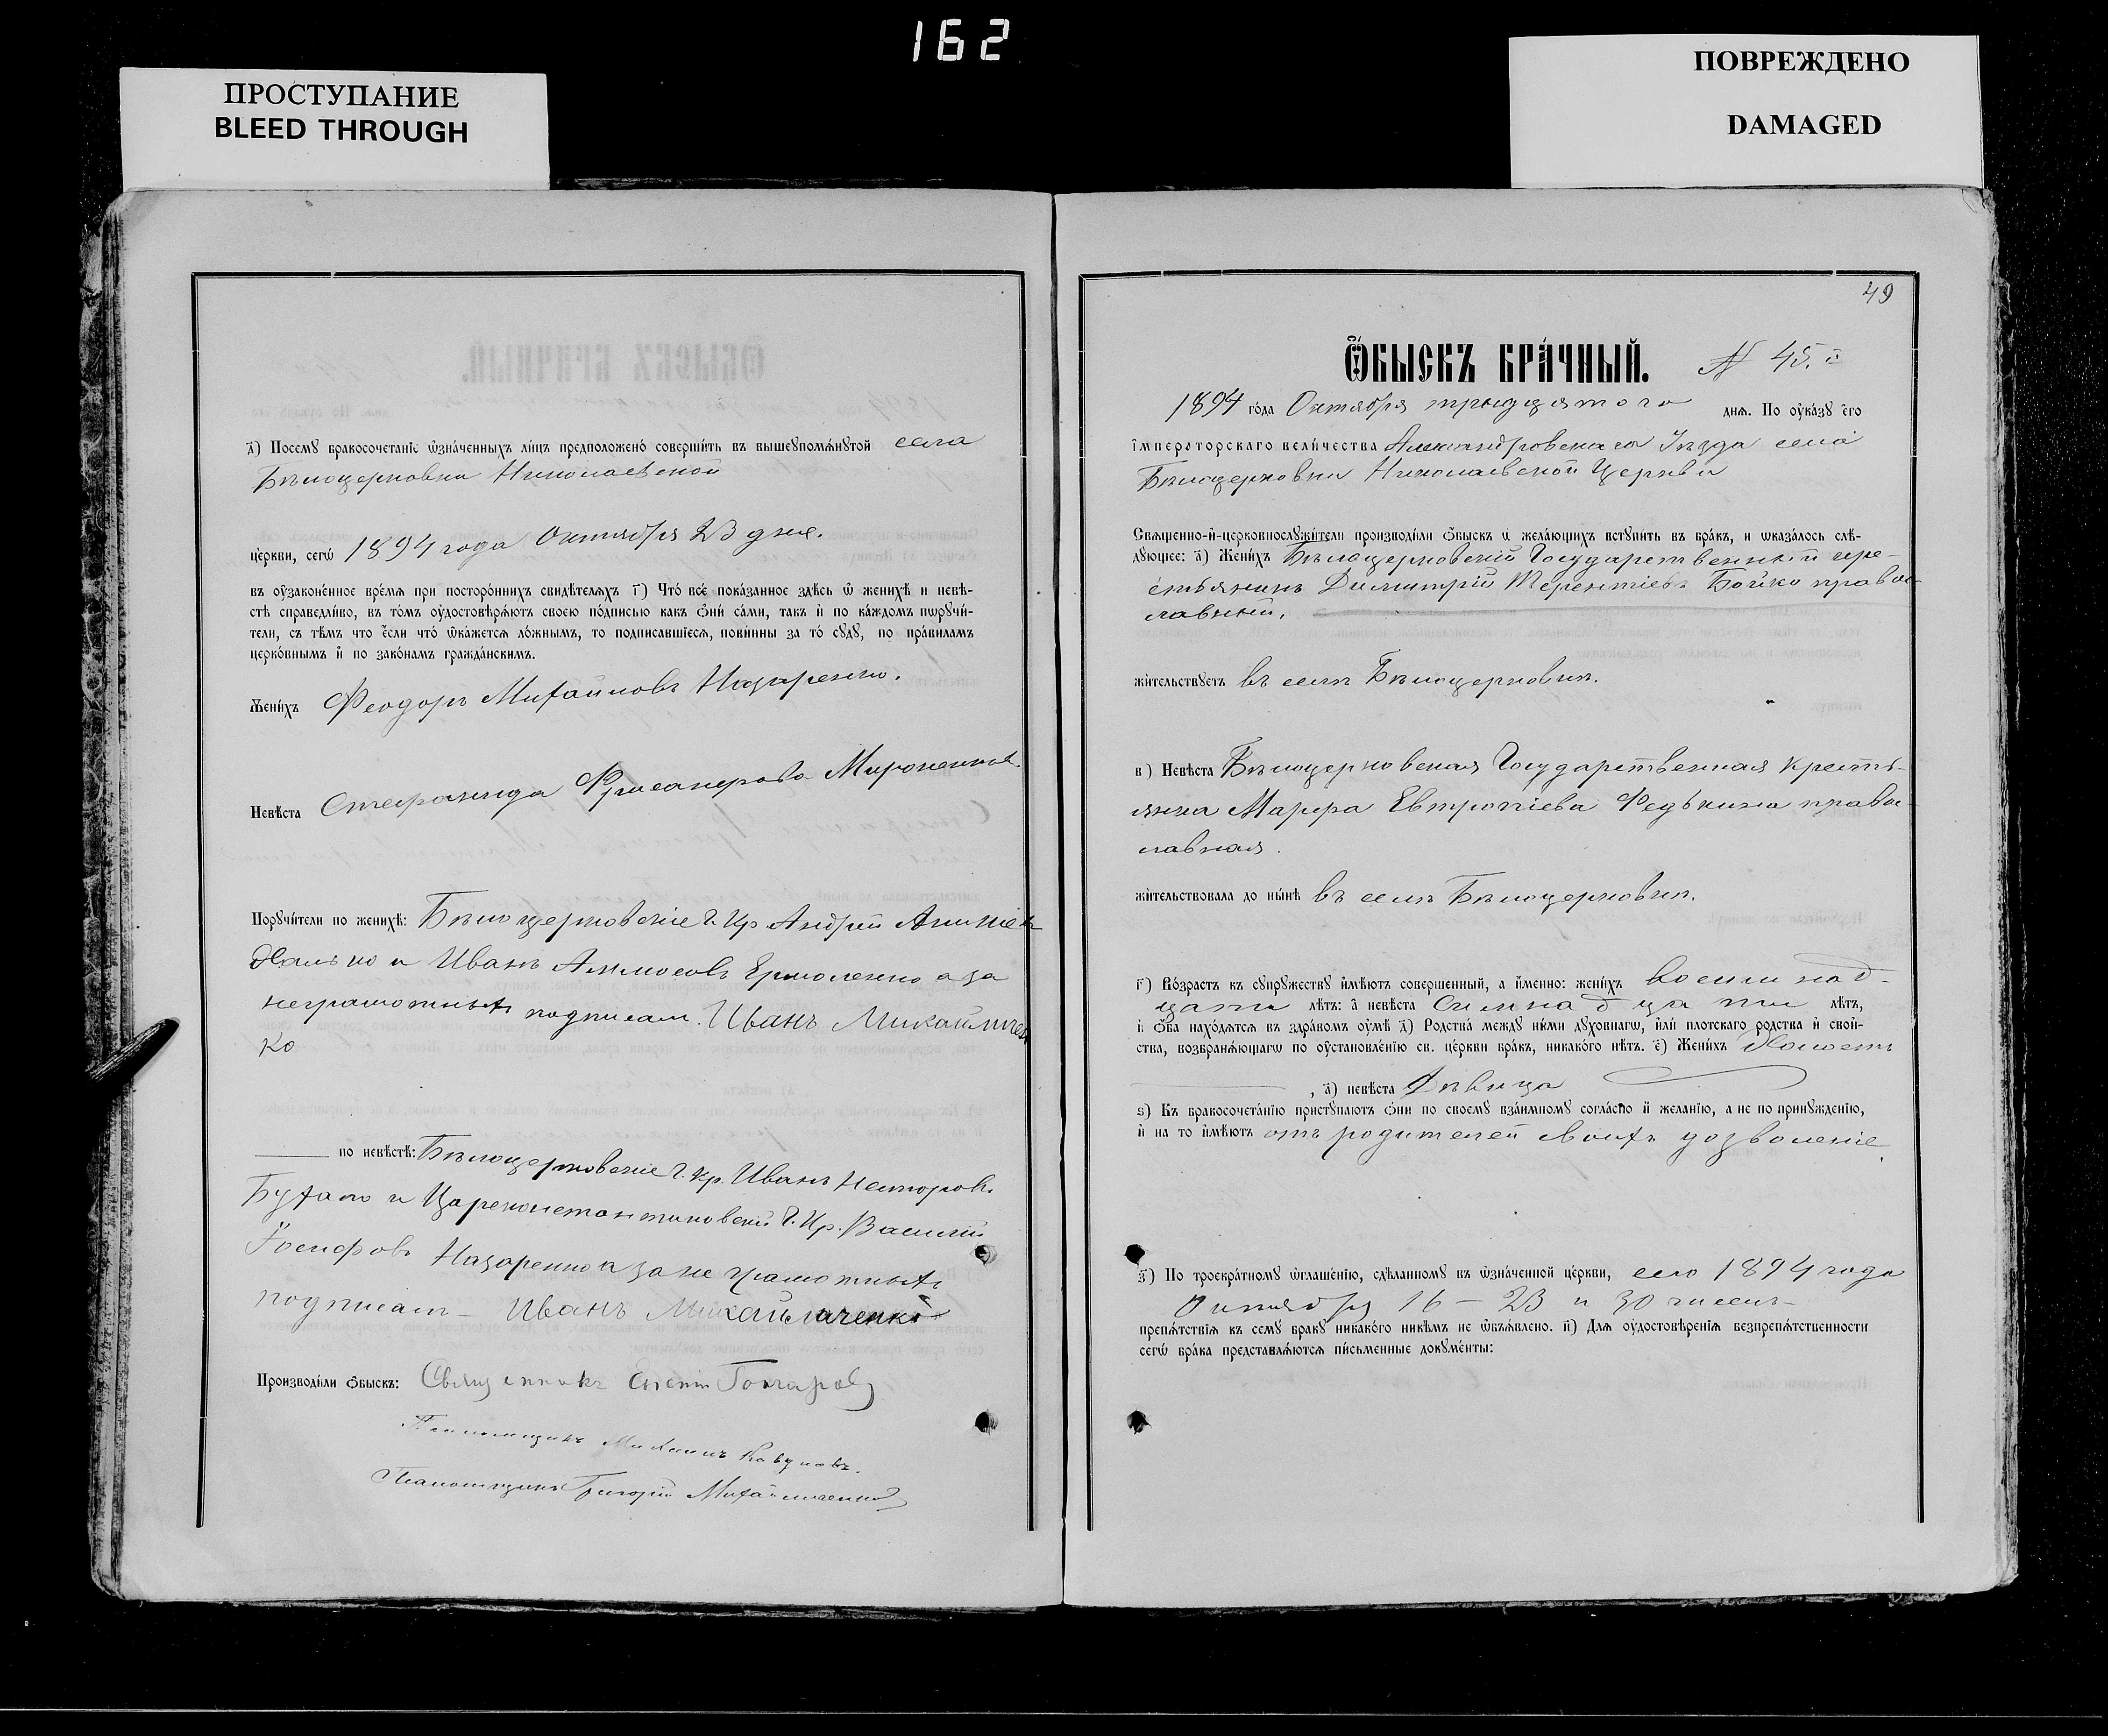 162
ПРОСТУПАНИЕ
BLEED THROUGH
ПОВРЕЖДЕНО
DAMAGED
д҃) Посемꙋ бракосочетанїе ѡзна́ченныхъ ли́цъ предположено́ соверши́ть въ вышеꙋпомѧ́нꙋтой села
Бѣлоцерковки Николаевской
це́ркви, сегѡ̀ 1894 года Октября 23 дня.
въ оу҆зако́ненное вре́мѧ при посторо́ннихъ свидѣ́телѧхъ г҃) Что́ всѐ пока́занное здѣ́сь ѡ҆ женихѣ̀ и невѣ́-
стѣ справедли́во, въ то́мъ оу҆достовѣрѧ́ютъ своею по́дписью какъ ѻ҆нѝ са́ми, такъ и҆ по ка́ждомъ порꙋчи́-
тели, съ тѣ́мъ что е҆́сли что́ ѡ҆ка́жетсѧ ло́жнымъ, то подписавшїесѧ, пови́нны за то̀ сꙋдꙋ̀, по пра́виламъ
церко́внымъ и҆ по зако́намъ гражда́нскимъ.
Жени́хъ Феодоръ Михайловъ Назаренко.
Невѣ́ста Стефанида Мироненкова
Порꙋчи́тели по женихѣ̀: Бѣлоцерковскіе Г. Кр Андрей
и Иванъ Аммосовъ Ермоленко а за
неграмотныхъ подписал. Иванъ Михайличен
ко
по невѣ́стѣ: Бѣлоцерковскіе Г. Кр. Иванъ Несторовъ
и Цареконстантиновскій Г. Кр. Василій
Іосифовъ Назаренко а за не грамотныхъ
подписалъ – Иванъ Михайличенко
Производи́ли ѻ҆́быскъ: Священникъ Гончаровъ
Псаломщикъ Михаилъ
Псаломщикъ Григорій Михайличенко
49
Ѻ҆́БЫСКЪ БРА́ЧНЫЙ. № 45.й
1894 го́да Октября тридцятого днѧ. По оу҆ка́зꙋ є҆гѡ̀
і҆мпера́торскагѡ вели́чества Александровскаго Уѣзда села
Бѣлоцерковки Николаевской Церкви
Свѧще́нно-и҆-церковнослꙋжи́тели производи́ли ѻ҆́быскъ ѡ҆ жела́ющихъ встꙋпи́ть въ бра́къ, и ѡ҆каза́лось слѣ́-
дꙋющее: а҃) Жени́хъ Бѣлоцерковскій Государственный кре-
стьянинъ Димитрій Терентіевъ Бойко правос-
лавный.
жи́тельствꙋетъ въ селѣ Бѣлоцерковкѣ.
в҃) Невѣ́ста Бѣлоцерковская Государственная Кресть-
янка Марфа Евтропіева Федькина право-
славная.
жи́тельствовала до ны́нѣ въ селѣ Бѣлоцерковкѣ.
г҃) Во́зрастъ къ сꙋпрꙋ́жествꙋ и҆мѣ́ютъ соверше́нный, а и҆́менно: жени́хъ восемнад-
цати лѣ́тъ: а҆ невѣ́ста Семнадцати лѣ́тъ,
и҆ ѻ҆́ба нахо́дѧтсѧ въ здра́вомъ оу҆мѣ̀ д҃) Родства̀ междꙋ ни́ми дꙋхо́внагѡ, и҆лѝ пло́тскаго родства̀ и҆ свой-
ства̀, возбранѧ́ющагѡ по оу҆становле́нїю св. це́ркви бра́къ, никако́го нѣ́тъ. є҃) Жени́хъ Холостъ
, а҃) невѣ́ста Дѣвица
ѕ҃) Къ бракосочета́нїю пристꙋпа́ютъ ѻ҆нѝ по своемꙋ̀ вза́имномꙋ согла́сїю и҆ жела́нїю, а не по принꙋжде́нїю,
и҆ на то и҆мѣ́ютъ отъ родителей своихъ дозволеніе
з҃) По троекра́тномꙋ ѡ҆глаше́нїю, сдѣ́ланномꙋ въ ѡ҆зна́ченной це́ркви, сего 1894 года
Октября 16 – 23 и 30 числъ –
препѧ́тствїѧ къ семꙋ̀ бра́кꙋ никако́го никѣ́мъ не ѡ҆бъѧ́влено. и҃) Длѧ оу҆достовѣре́нїѧ безпрепѧ́тственности
сегѡ̀ бра́ка представлѧ́ютсѧ пи́сьменные докꙋме́нты: